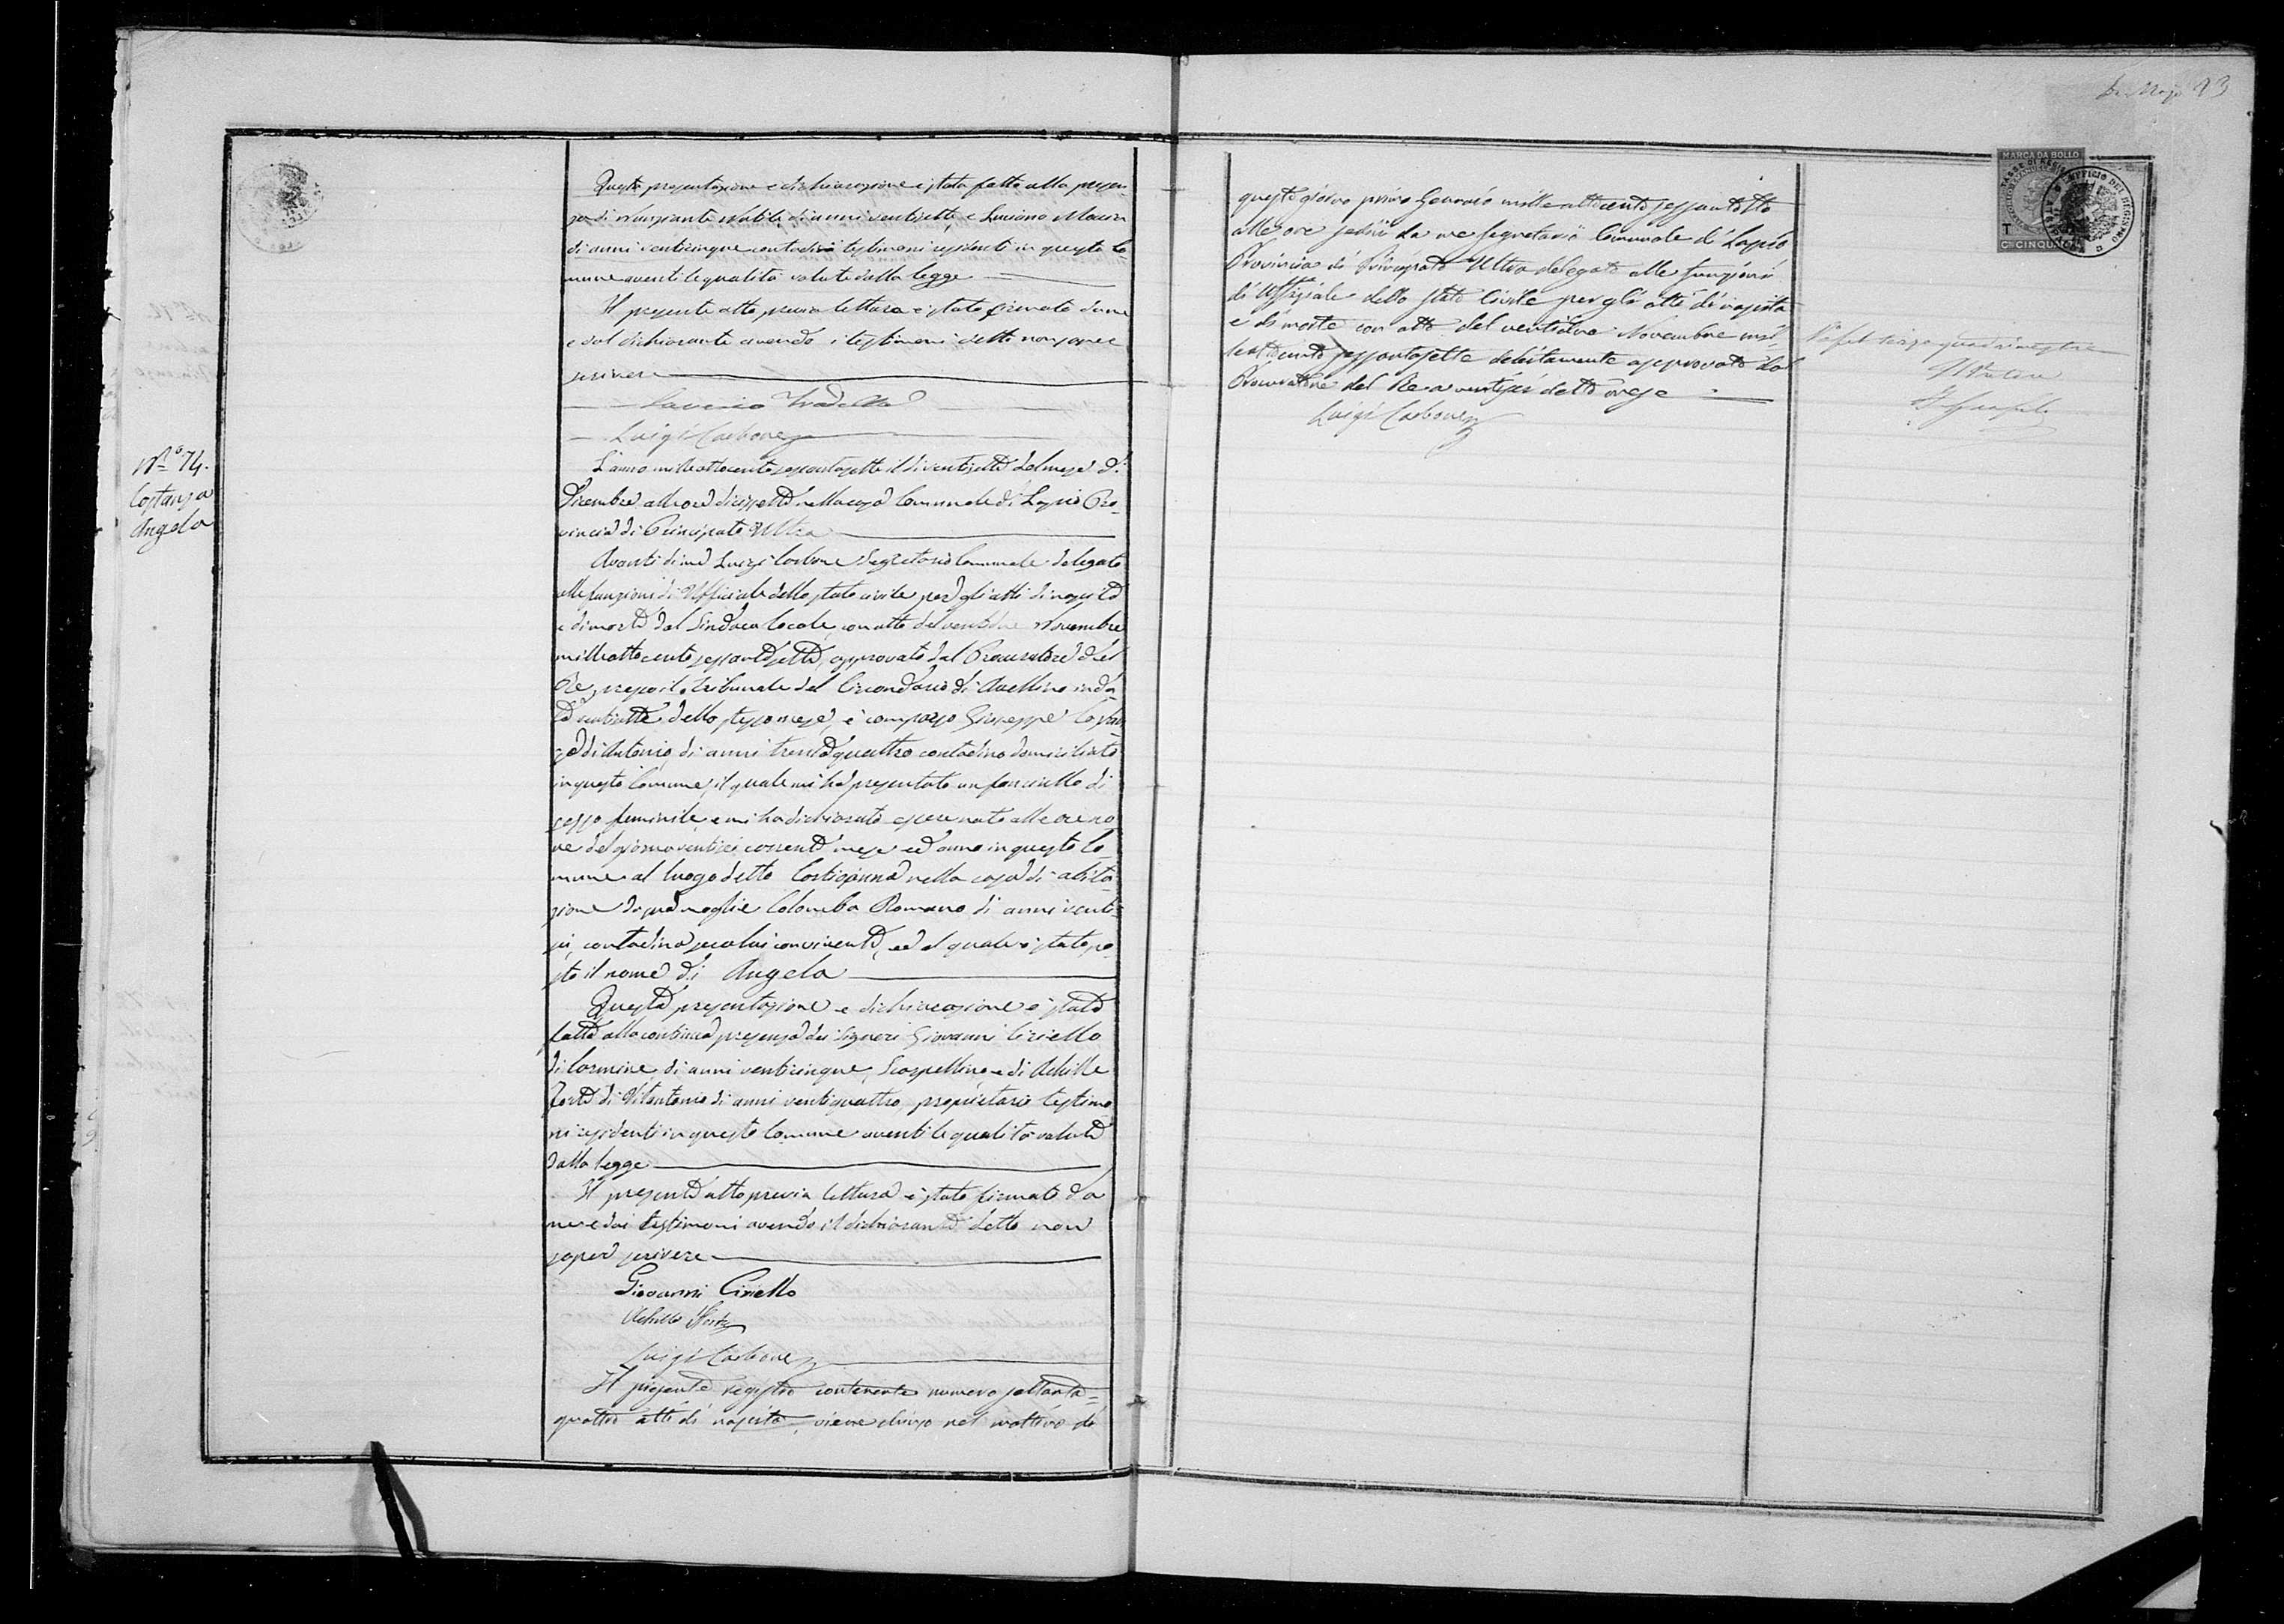 Questa presentazione e dichiarazione è stata fatta alla presen-
za di Nunziante Nobile di anni ventisette, e Luciano
di anni venticinque contadini testimoni residenti in questo Co-
mune aventi le qualità volute dalla legge
Il presente atto previa lettura è stato firmato da me
e dal dichiarante avendo i testimoni detto non saper
scrivere
Saverio
Luigi Carbone
Nº 74.
Costanza
Angela
L'anno milleottocentosessantasette il dì ventisette del mese di
Dicembre alle ore dicissette nella casa Comunale di Lapio Pro-
vincia di Principato Ultra
Avanti di me Luigi Carbone Segretario Comunale delegato
alle funzioni di Uffiziale dello stato civile per gli atti di nascita
e di morte dal Sindaco locale, con atto del ventidue Novembre
milleottocentosessantasette, approvato dal Procuratore del
Re presso il Tribunale del Circondario di Avellino in da-
ta dello stesso mese, è comparso Giuseppe Costan-
za di Antonio, di anni trentaquattro contadino domiciliato
in questo Comune, il quale mi ha presentato un fanciullo di
sesso feminile, e mi ha dichiarato essere nato alle ore no-
ve del giorno ventisei corrente mese ed anno in questo Co-
mune al luogo detto nella casa di abita-
zione da sua moglie Colomba Romano di anni venti-
sei, contadina seco lui convivente, ed al quale è stato po-
sto il nome di Angela
Questa presentazione e dichiarazione è stata
fatta alla continua presenza dei Signori Giovanni Ciriello
di Carmine di anni venticinque, Scarpellino e di Achille
Forte di Vitantonio di anni ventiquattro, proprietario testimo-
ni residenti in questo Comune aventi le qualità volute
dalla legge
Il presente atto previa lettura è stato firmato da
me e dai testimoni avendo il dichiarante detto non
saper scrivere
Giovanni Ciriello
Achille Forte
Luigi Carbone
Il presente registro contenente numero settanta=
quattro atti di nascita, viene chiuso nel mattino di
23
MARCA DA BOLLO
TASSE DI REGISTRO
UFFICIO DEL REGISTRO
CMI CINQUANTA
questo giorno primo Gennaio mille ottocento sessantotto
alle ore sedici da me Segretario Comunale di Lapio
Provincia di Principato Ultra delegato alle funzioni
di Uffiziale dello stato Civile per gli atti di nascita
e di morte con atto del ventidue Novembre mil-
leottocento sessantasette debitamente approvato dal
Procuratore del Re a ventisei detto mese
Luigi Carbone